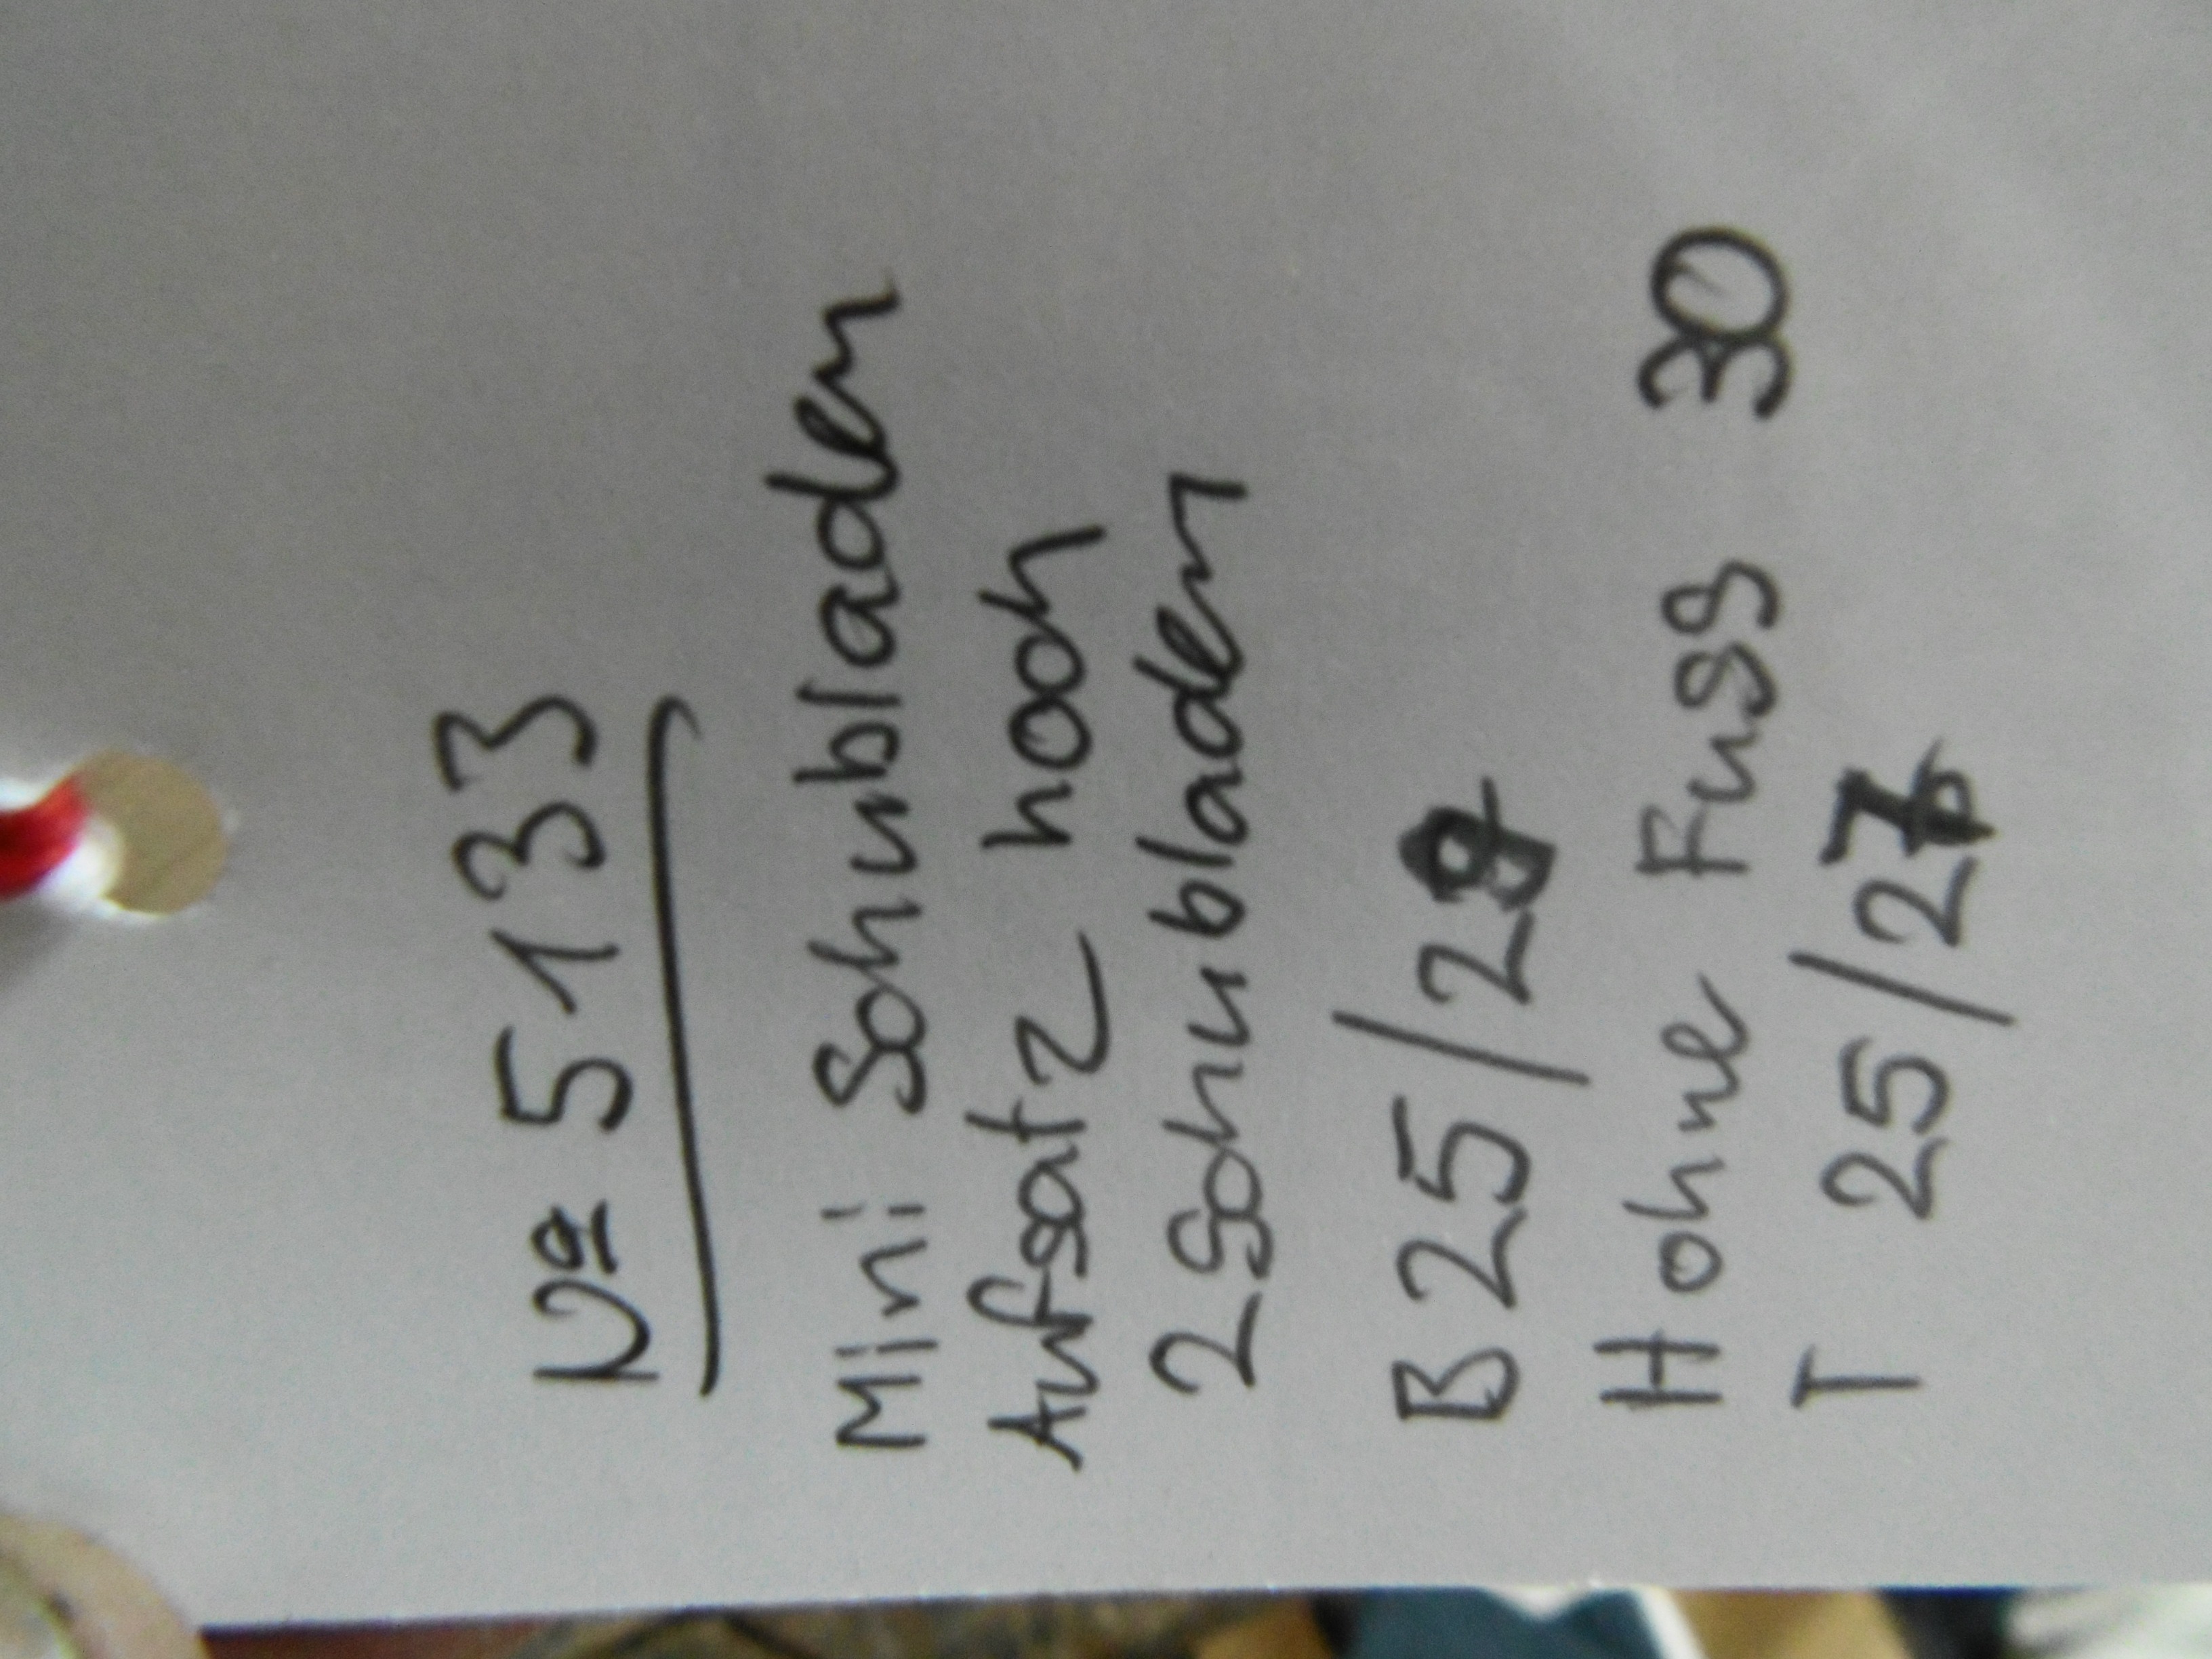 Nº 5133
Mini Schubladen
Aufsatz hoch
2 Schubladen
B 25/28
H ohne Fuss 30
T 25/27